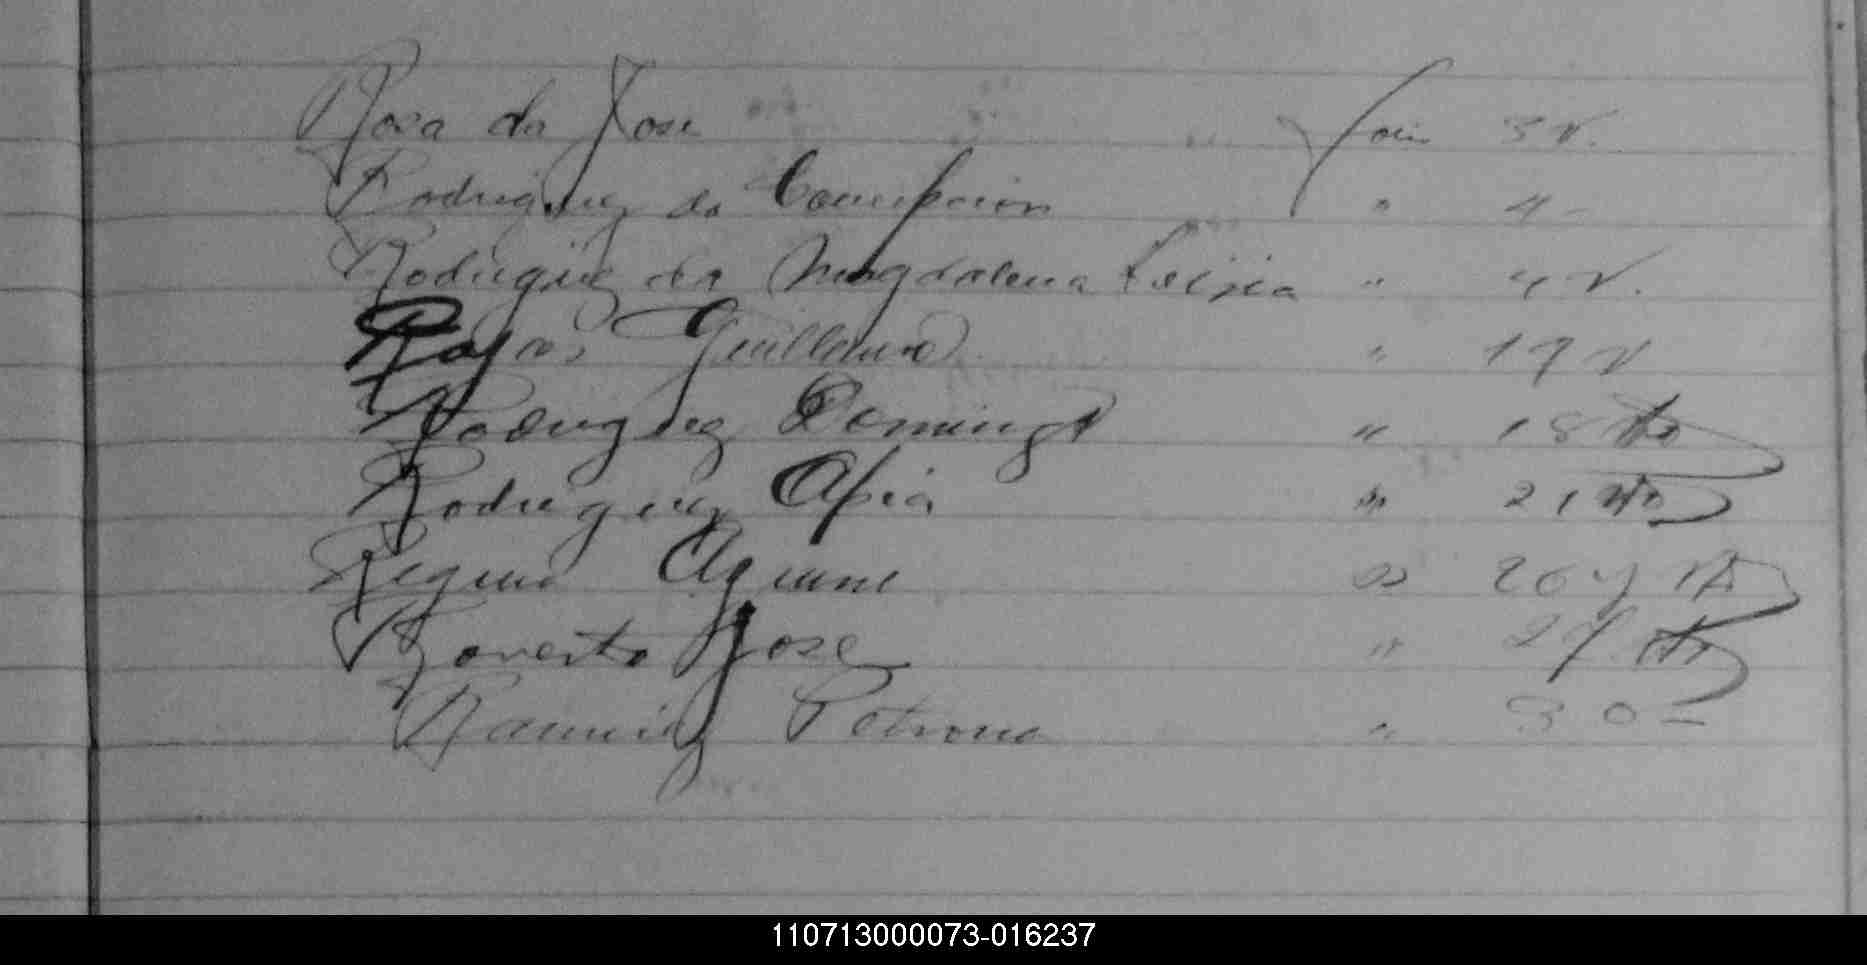 Rosa da Jose foio 3 v.
Rodriguez da Concepcion " 4 -
Rodriguez da Magdalena " 4 v.
Rojas Guillermo " 17 v
Rodriguez Domingo " 18
Rodriguez Apia " 21
Regina " 26 y
Roverto Jose " 27
Ramirez Petrona " 30 -
110713000073-016237